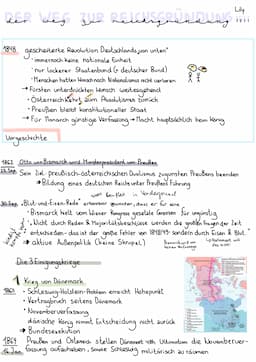 Lily
DER WEG ZUR REICHSGRÜNDUNG
der weg zur reichsgründung 1871
1848 gescheiterte Revolution "Deutschlands von unten"
• immernoch keine nationale Einheit
• nur lockerer Staatenbund (≙ deutscher Bund)
• Menschen hatten Wunsch nach Nationalstaat nicht verloren
→ Fürsten unterdrückten Wunsch weitestgehend
• Österreich kehrt zum Absolutismus zurück
• Preußen bleibt konstitutioneller Staat
• Für Monarch günstige Verfassung → Macht hauptsächlich beim König
Vorgeschichte
1862 Otto von Bismarck wird Ministerpräsident von Preußen
23. Sep. Sein Ziel: preußisch-österreichischen Dualismus zugunsten Preußens beenden
→ Bildung eines deutschen Reichs unter Preußens Führung
30. Sep. "Blut-und-Eisen-Rede"
• Bismarck hielt vom Wiener Kongress gesetzte Grenzen für ungünstig
• "Nicht durch Reden & Majoritätsbeschlüsse werden die großen Fragen der Zeit
entschieden - das ist der große Fehler von 1848/49 - sondern durch Eisen & Blut."
→ aktive Außenpolitik (keine Skrupel)
Die 3 Einigungskriege
1 Krieg von Dänemark
1864 • Schleswig-Holstein-Problem erreicht Höhepunkt
• Vertragsbruch seitens Dänemark
• Novemberverfassung
dänische König nimmt Entscheidung nicht zurück
→ Bundesexekution
1864 Preußen und Österreich stellen Dänemark
16. Jan. fassung aufzuheben, sowie Schleswig militärisch zu räumen